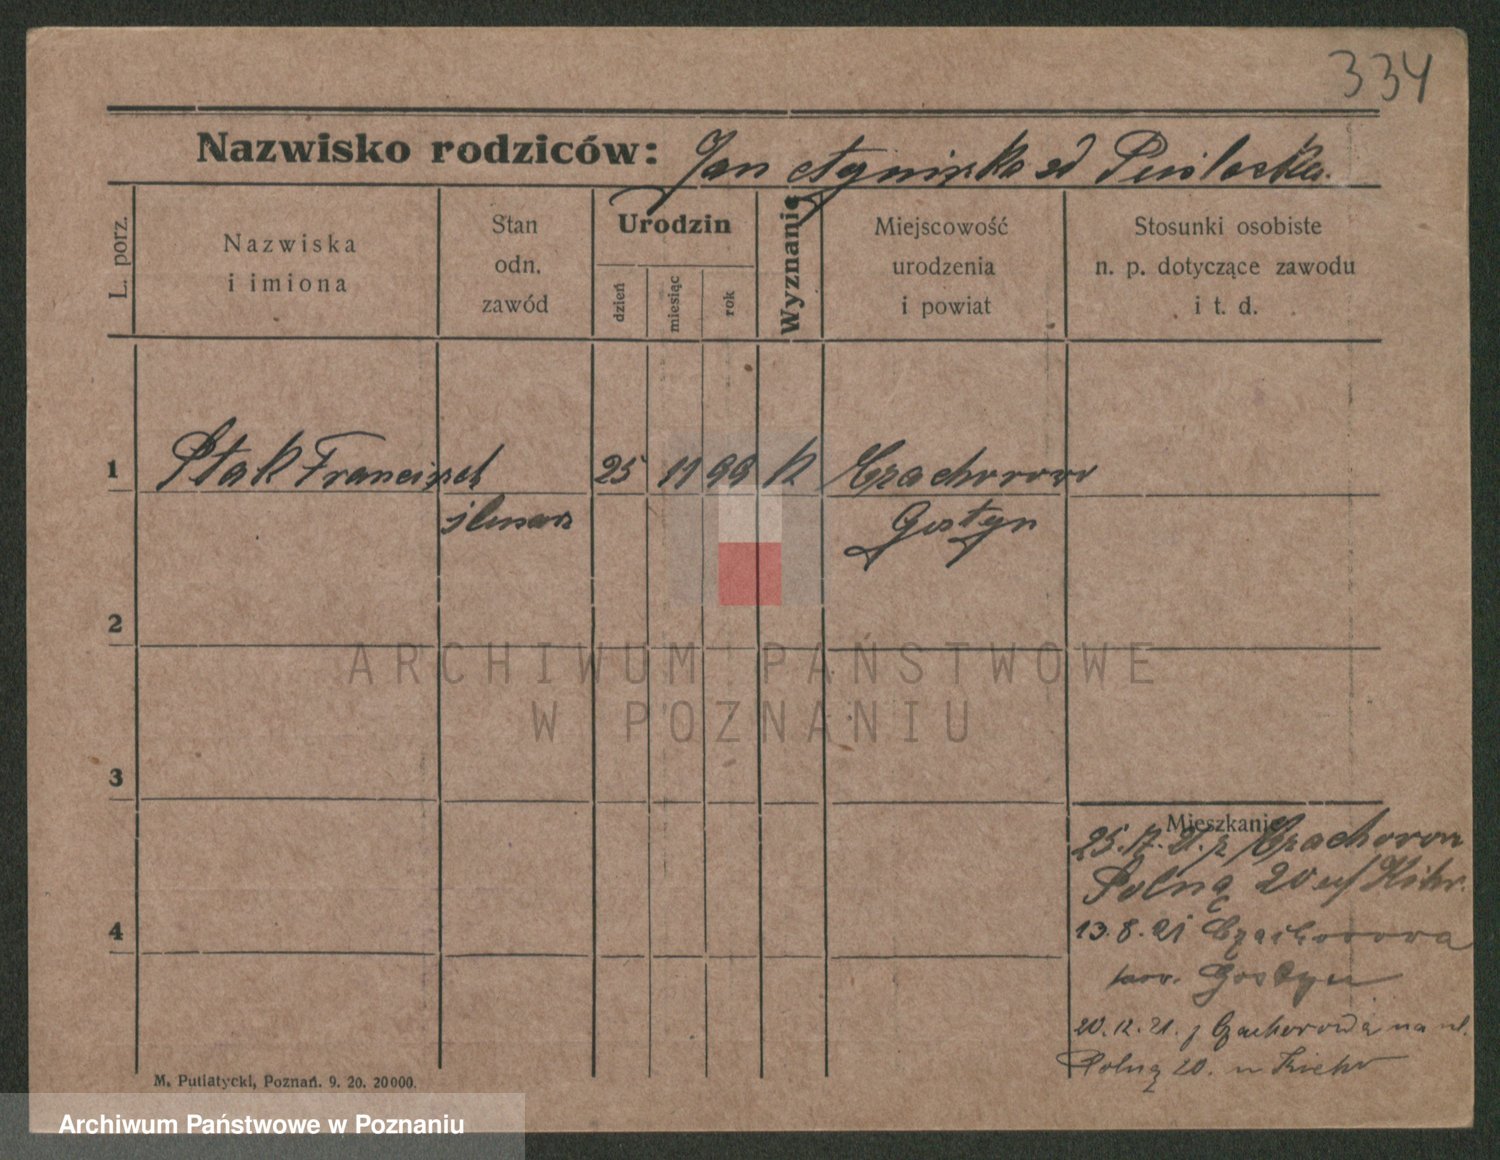 334
Nazwisko rodziców: Jan Agnieszka zd
L. porz.
Nazwiska
i imiona
Stan
odn.
zawód
Urodzin
dzień
miesiąc
rok
Wyznanie
Miejscowość
urodzenia
i powiat
Stosunki osobiste
n. p. dotyczące zawodu
i t. d.
1 Ptak Franciszek 25 11 99 k Czachorowo
ślusarz Gostyn
2
ARCHIWUM PAŃSTWOWE
W POZNANIU
3
Mieszkanie
Polną 20
4
13.8.21 Czachorowa
pow. Gostyn
20.12.21. z Czachorowa na ul.
Polną 20.
M. Putiatycki, Poznań. 9. 20. 20000.
Archiwum Państwowe w Poznaniu